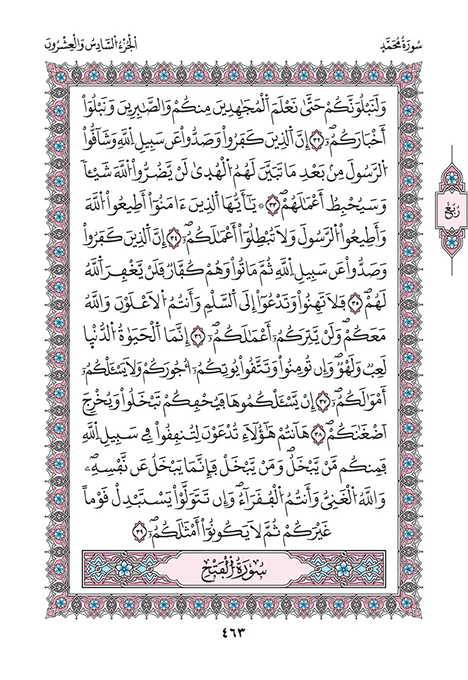 سُورَةُ مُحَمَّدٍ
الجُزْءُ السَّادِسُ وَالْعِشْرُونَ
وَلَنَبْلُوَنَّكُمْ حَتَّىٰ نَعْلَمَ اَلْمُجَٰهِدِينَ مِنكُمْ وَالصَّٰبِرِينَ وَنَبْلُوَاْ
أَخْبَارَكُمْۖ ٣٢ إِنَّ اَلذِينَ كَفَرُواْ وَصَدُّواْ عَن سَبِيلِ اِللَّهِ وَشَآقُّواْ
اُلرَّسُولَ مِنۢ بَعْدِ مَا تَبَيَّنَ لَهُمُ اُلْهُدَىٰ لَنْ يَّضُرُّواْ اُللَّهَ شَيْـٔاٗ
وَسَيُحْبِطُ أَعْمَٰلَهُمْۖ ٣٣ ۞ يَٰٓأَيُّهَا اَلذِينَ ءَامَنُوٓاْ أَطِيعُواْ اُللَّهَ
وَأَطِيعُواْ اُلرَّسُولَ وَلَا تُبْطِلُوٓاْ أَعْمَٰلَكُمْۖ ٣٤ إِنَّ اَلذِينَ كَفَرُواْ
وَصَدُّواْ عَن سَبِيلِ اِللَّهِ ثُمَّ مَاتُواْ وَهُمْ كُفَّارٞ فَلَنْ يَّغْفِرَ اَللَّهُ
لَهُمْۖ ٣٥ فَلَا تَهِنُواْ وَتَدْعُوٓاْ إِلَى اَلسَّلْمِ وَأَنتُمُ اُلَاعْلَوْنَ وَاللَّهُ
مَعَكُمْ وَلَنْ يَّتِرَكُمُۥٓ أَعْمَٰلَكُمُۥٓۖ ٣٦ إِنَّمَا اَلْحَيَوٰةُ اُلدُّنْيَا
لَعِبٞ وَلَهْوٞۖ وَإِن تُومِنُواْ وَتَتَّقُواْ يُوتِكُمُۥٓ أُجُورَكُمْ وَلَا يَسْـَٔلْكُمُۥٓ
أَمْوَٰلَكُمُۥٓۖ ٣٧ إِنْ يَّسْـَٔلْكُمُوهَا فَيُحْفِكُمْ تَبْخَلُواْ وَيُخْرِجَ
اَضْغَٰنَكُمْۖ ٣٨ هَٰٓأَنتُمْ هَٰٓؤُلَآءِ تُدْعَوْنَ لِتُنفِقُواْ فِي سَبِيلِ اِللَّهِ
فَمِنكُم مَّنْ يَّبْخَلُۖ وَمَنْ يَّبْخَلْ فَإِنَّمَا يَبْخَلُ عَن نَّفْسِهِۦۖ
وَاللَّهُ اُلْغَنِيُّ وَأَنتُمُ اُلْفُقَرَآءُۖ وَإِن تَتَوَلَّوْاْ يَسْتَبْدِلْ قَوْماً
غَيْرَكُمْ ثُمَّ لَا يَكُونُوٓاْ أَمْثَٰلَكُمُۥٓۖ ٣٩
سُورَةُ اُلْفَتْحِ
رُبُع
٤٦٣